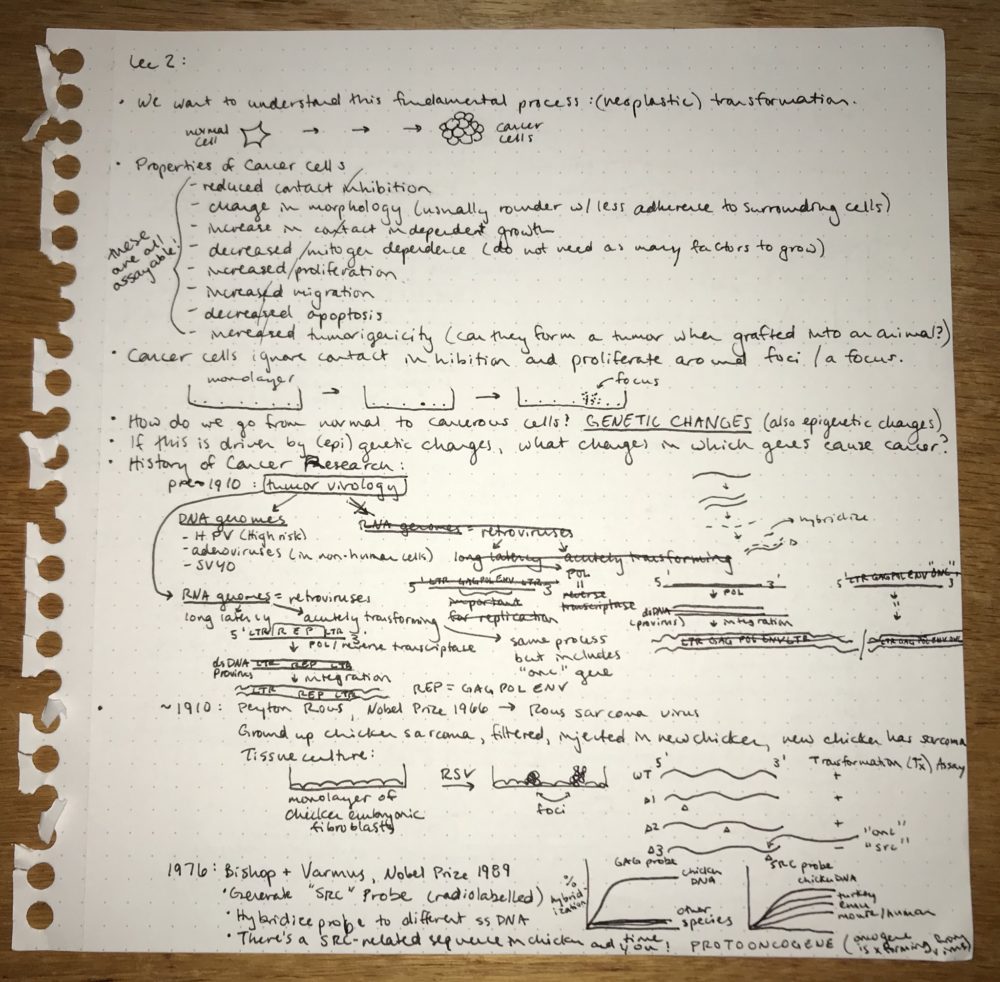 Lec 2:
• We want to understand this fundamental process: (neoplastic) transformation.
normal cell → → → cancer cells
• Properties of Cancer cells
these are all assayable:
- reduced contact inhibition
- change in morphology (usually rounder w/ less adherence to surrounding cells)
- increase in contact independent growth
- decreased mitogen dependence (do not need as many factors to grow)
- increased proliferation
- increased migration
- decreased apoptosis
- increased tumorigenicity (can they form a tumor when grafted into an animal?)
• Cancer cells ignore contact inhibition and proliferate around foci / a focus.
monolayer → → focus
• How do we go from normal to cancerous cells? GENETIC CHANGES (also epigenetic changes)
• If this is driven by (epi)genetic changes, what changes in which genes cause cancer?
• History of Cancer Research:
pre~1910: tumor virology
DNA genomes
- HPV (High risk)
- adenoviruses (in non-human cells)
- SV40
RNA genomes = retroviruses
long latency acutely transforming
5' LTR GAG POL ENV LTR 3'
important for replication
POL = reverse transcriptase
→ hybridize
5' 3'
↓ POL
dsDNA (provirus)
↓ integration
LTR GAG POL ENV LTR
5' LTR GAG POL ENV "ONC" 3'
LTR GAG POL ENV ONC
RNA genomes = retroviruses
long latency acutely transforming
5' LTR REP LTR 3'
↓ POL/reverse transcriptase
dsDNA Provirus LTR REP LTR
↓ integration
LTR REP LTR
same process
but includes
"onc" gene
REP = GAG POL ENV
~1910: Peyton Rous, Nobel Prize 1966 → Rous sarcoma virus
Ground up chicken sarcoma, filtered, injected in new chicken, new chicken has sarcoma
Tissue culture:
monolayer of
chicken embryonic
fibroblasts
RSV →
foci
5' 3' Transformation (Tx) Assay
WT +
Δ1 Δ +
Δ2 Δ +
Δ3 Δ -
"onc"
"src"
1976: Bishop + Varmus, Nobel Prize 1989
• Generate "SRC" Probe (radiolabelled)
• Hybridize probe to different ss DNA
• There's a SRC-related sequence in chicken and you! PROTOONCOGENE
% hybridization
GAG probe
chicken DNA
other species
time
SRC probe
chicken DNA
turkey
emu
mouse/human